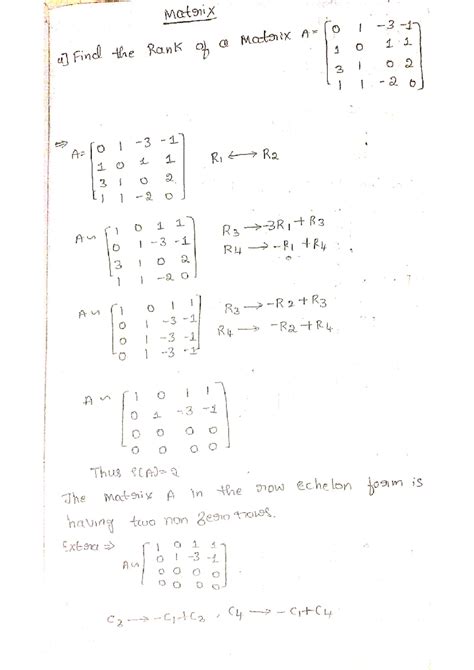 Matrix
a] Find the Rank of a Matrix A = [0 1 -3 -1
1 0 1 1
3 1 0 2
1 1 -2 0]
⇒ A = [0 1 -3 -1
1 0 1 1
3 1 0 2
1 1 -2 0] R1 ↔ R2
A ~ [1 0 1 1
0 1 -3 -1
3 1 0 2
1 1 -2 0] R3 → -3R1 + R3
R4 → -R1 + R4
A ~ [1 0 1 1
0 1 -3 -1
0 1 -3 -1
0 1 -3 -1] R3 → -R2 + R3
R4 → -R2 + R4
A ~ [1 0 1 1
0 1 -3 -1
0 0 0 0
0 0 0 0]
Thus ρ(A) = 2
The matrix A in the row echelon form is
having two non zero rows.
Extra ⇒
A ~ [1 0 1 1
0 1 -3 -1
0 0 0 0
0 0 0 0]
C3 → -C1 + C3 , C4 → -C1 + C4